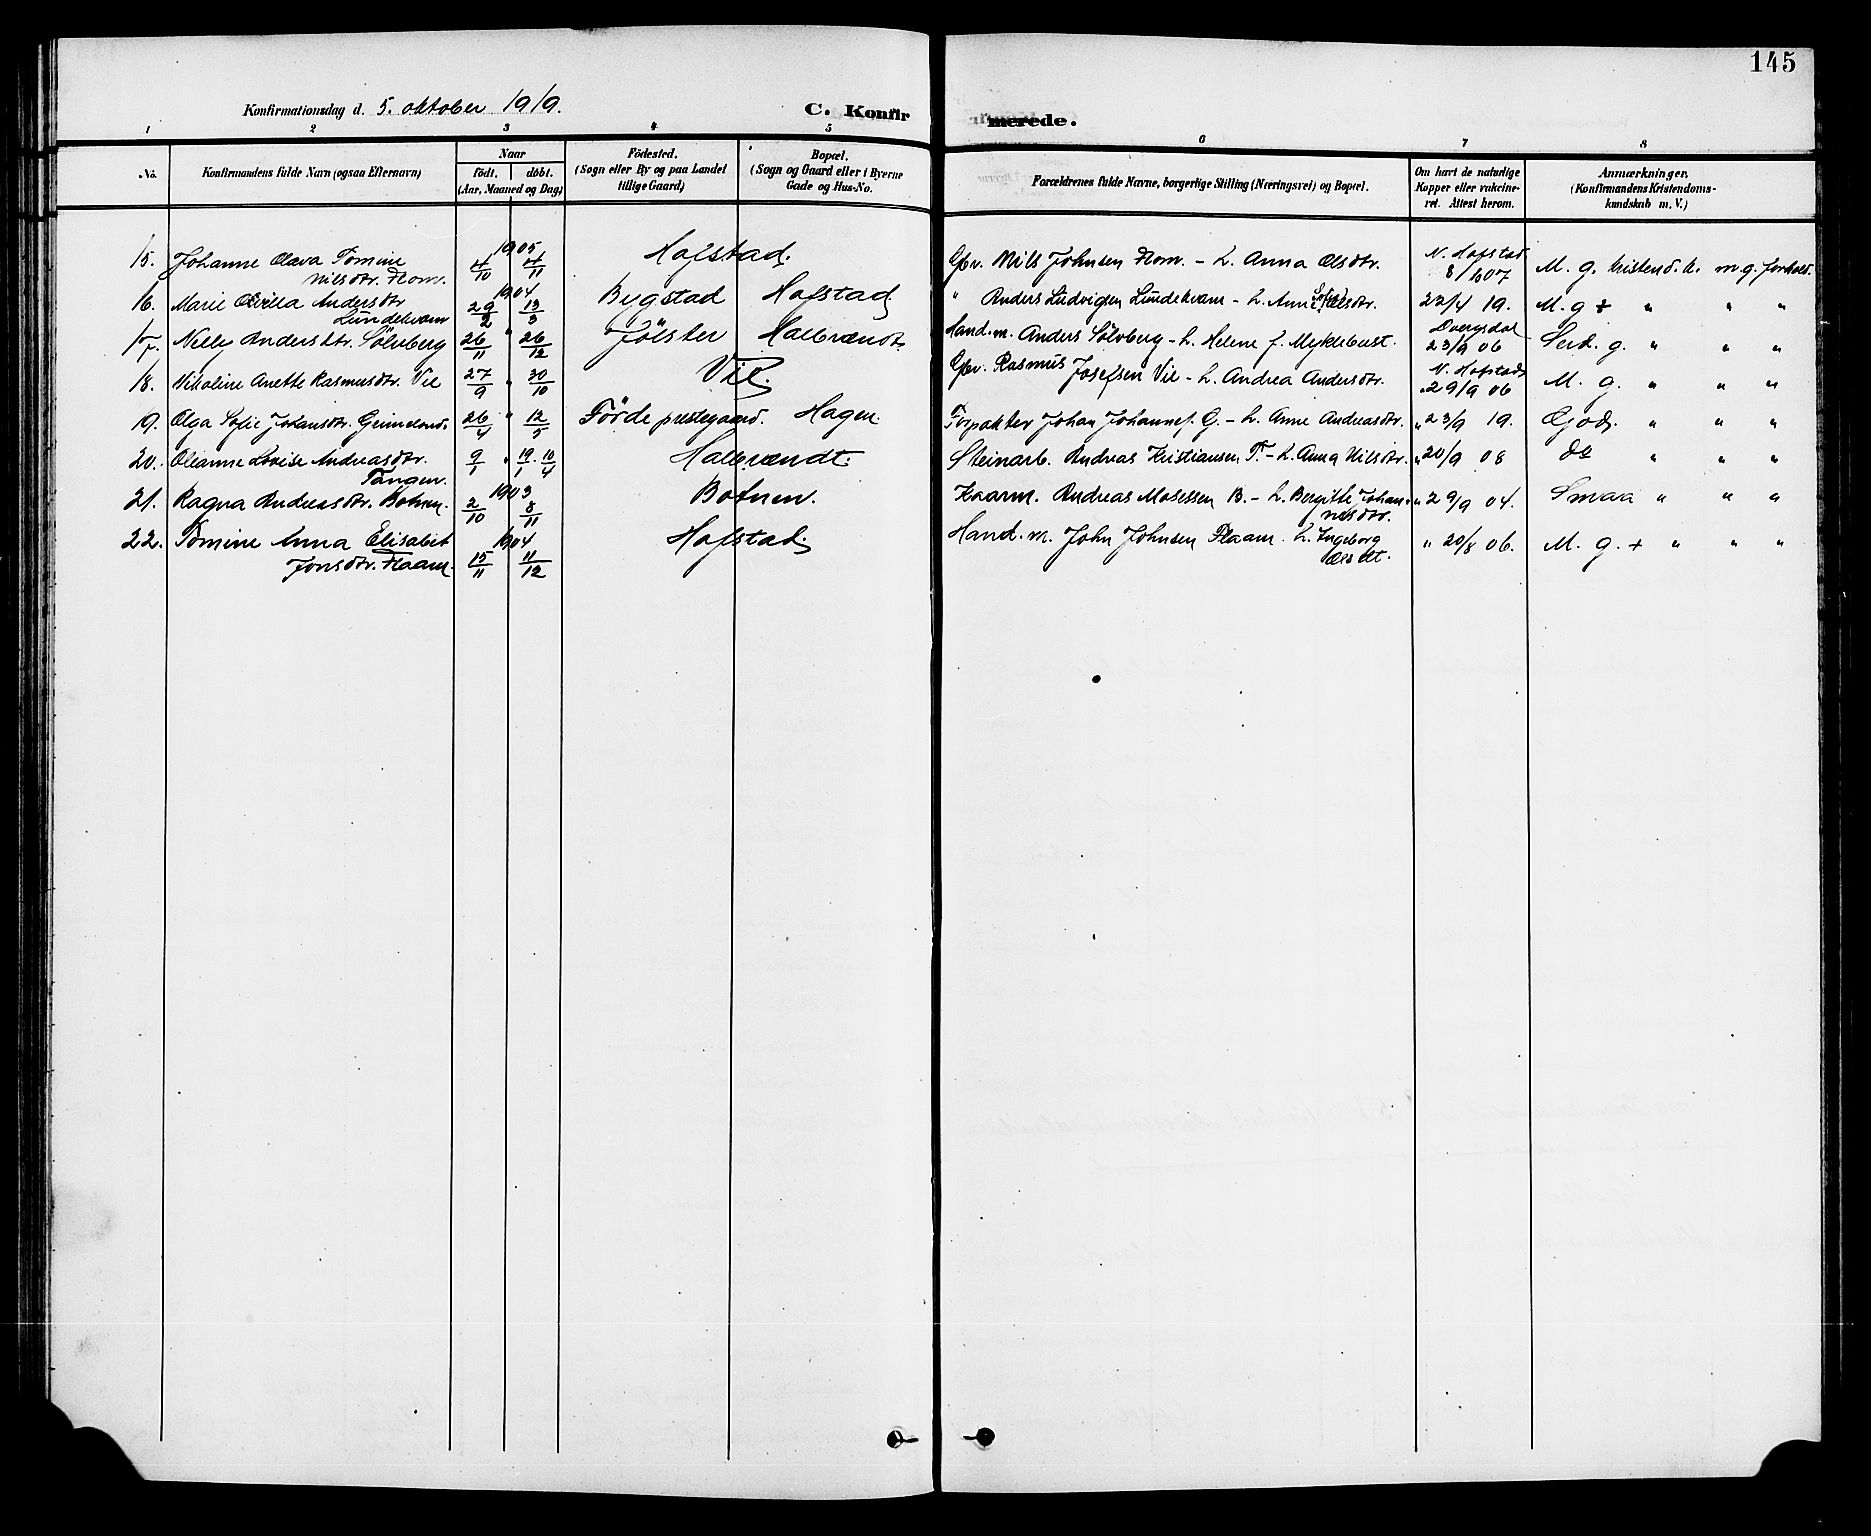 145
Konfirmationsdag d. 5. oktober 1919. C. Konfirmerede.
1 2 3 4 5 6 7 8
No. Konfirmandens fulde Navn (ogsaa Efternavn) Naar født. døbt. (Aar, Maaned og Dag) Fødested. (Sogn eller By og paa Landet tillige Gaard) Bopæl. (Sogn og Gaard eller i Byerne Gade og Hus-No. Forældrenes fulde Navne, borgerlige Stilling (Næringsvei) og Bopæl. Om havt de naturlige Kopper eller vakcineret. Attest herom. Anmærkninger. (Konfirmandens Kristendomskundskab m. V.)
15. Johanne Olava Tomine 1905 4/10 4/11 Hafstad. Gbr. Nils Johnsen - L. Anna Olsdtr. N. Hafstad
Nilsdtr. 8/10 07 M. g. kristend. k. m. g. forhold.
16. Marie Andersdtr 1904 29/2 13/3 Bygstad Hafstad " Anders Ludvigsen Lundekvam - L. Anne Olsdtr. 22/4 19. M. g + " " "
Lundekvam
17. Nelly Andersdtr. Sölvberg 26/11 " 26/12 Jölster Halbrændt. Hand. m. Anders Sölvberg - L. Helene f. Myklebust. 23/9 06 Serd. g. " " "
18. Nikoline Anette Rasmusdtr. Vie 27/9 " 30/10 Vie. Gbr. Rasmus Josefsen Vie - L. Andrea Andersdtr. N. Hafstad 29/9 06 M. g. " " "
19. Olga Sofie Johansdtr. 26/4 " 12/5 Förde prestegaard. Hagen. Forpakter Johan Johannes. G. - L. Anne Andreasdtr. " 23/9 19. Godt. " " "
20. Oleanne Lovise Andreasdtr. 9/1 " 19. 10/4 Halbrændt. Steinarb. Andreas Kristiansen T. - L. Anna Nilsdtr. " 20/9 08 do " " "
Tangen.
21. Ragna Andreasdtr. Botnen. 1903 2/10 8/11 Botnen. Kaarm. Andreas Mosessen B. - L. Bergitte Johannesdtr. " 29/9 04. Smaa " " "
22. Tomine Anna Elisabet 1904 Hafstad. Hand. m. John Johnsen Flaam. L. Ingeborg " 20/8 06. M. g. + " " "
Jonsdtr. Flaam. 15/11 11/12 Olsdt.